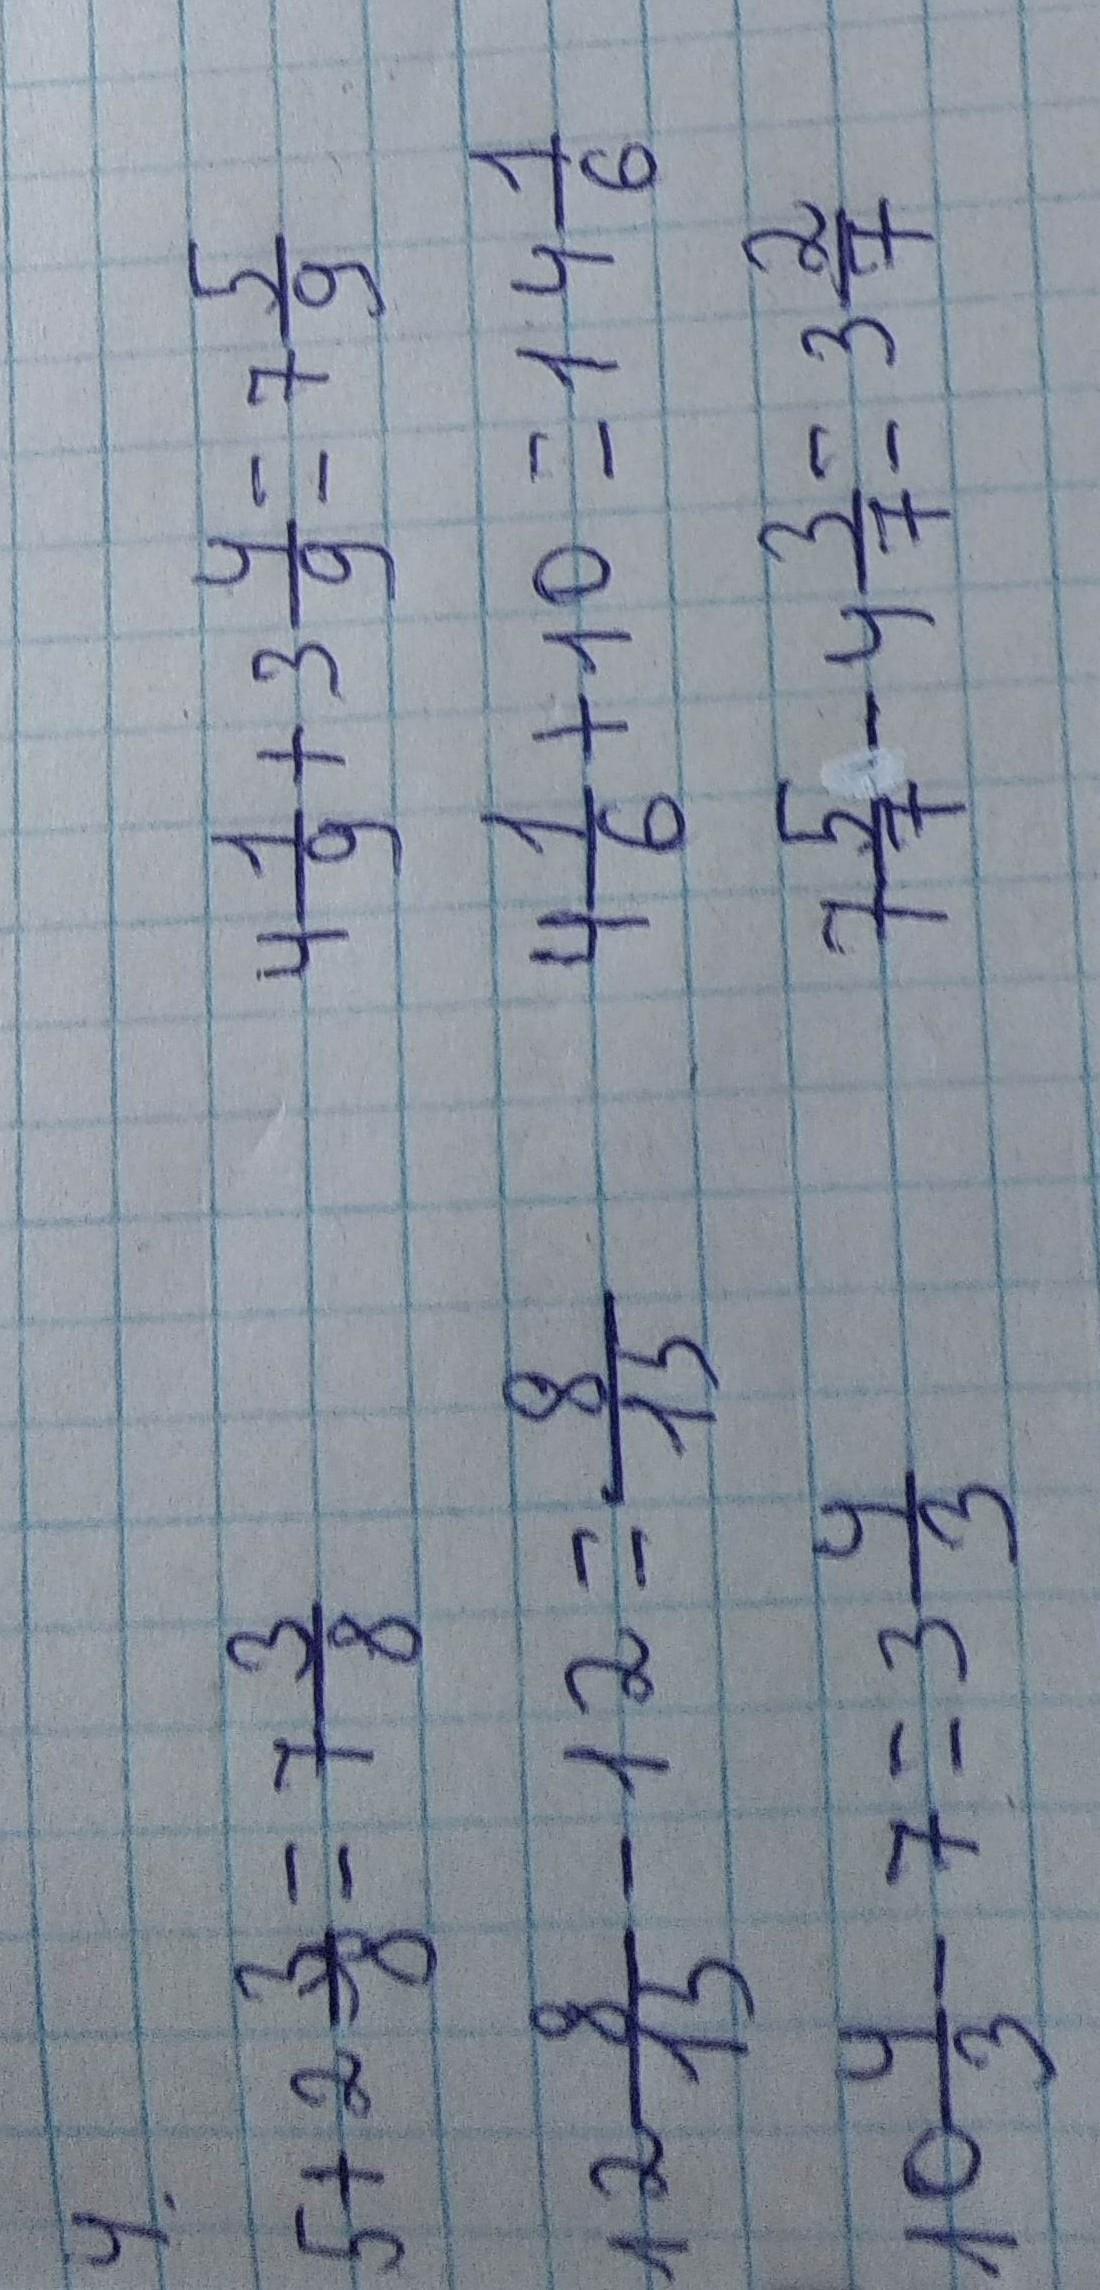 4.
5 + 2 3/8 = 7 3/8
4 1/9 + 3 4/9 = 7 5/9
12 8/15 - 12 = 8/15
4 1/6 + 10 = 14 1/6
10 4/3 - 7 = 3 4/3
7 5/7 - 4 3/7 = 3 2/7